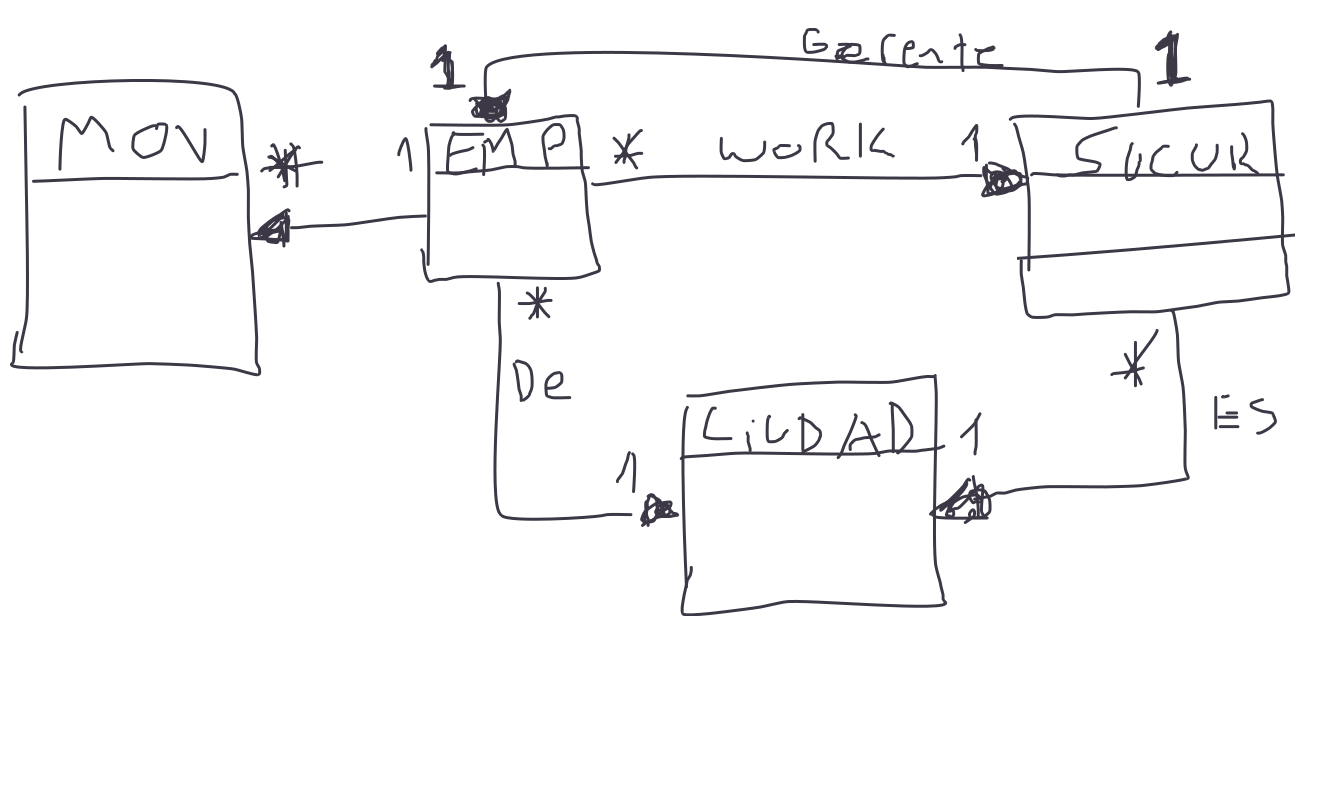 Gerente
1
1
MOV
*
1
EMP
*
WORK
1
SUCUR
*
De
*
ES
1
CiUDAD
1